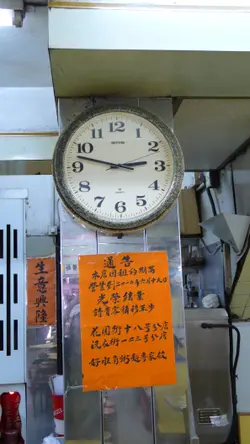 12
1
2
3
4
5
6
7
8
9
10
11
生意興隆
通告
本店因租約期滿
營業到二〇二 年六月十九日
光榮結業
請貴客移步
花園街十八号分店
洗衣街一二三号分店
好旺角粥麵專家啟